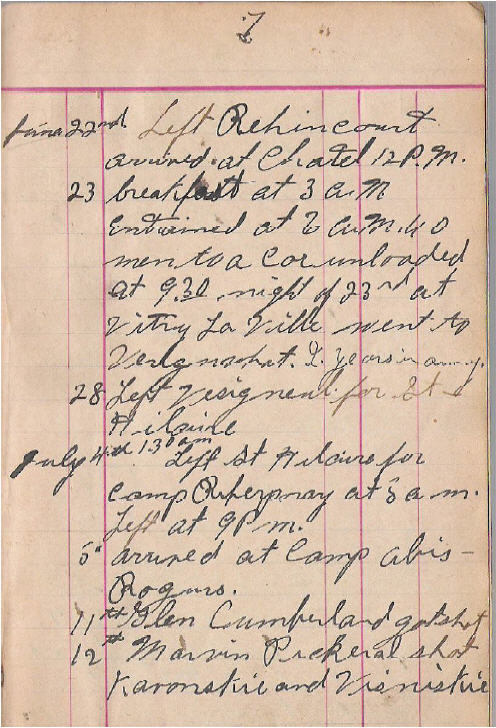 7
June 22nd Left Rehincourt
arrived at Chatel 12 P.M.
23 breakfast at 3 a.m
Entrained at 6 a.m. 40
men to a Car unloaded
at 9.30 night of 23rd at
Vitry La Ville went to
2 years in army.
28 Left for St
Hilaire
July 4th 1.30 am Left St Hilaire for
Camp at 5 a m.
Left at 9 P m.
5" arrived at Camp abis-
Rogurs.
11th Glen Cumberland got shot
12th Marvin Pickeral shot
Karonskie and Visniskie